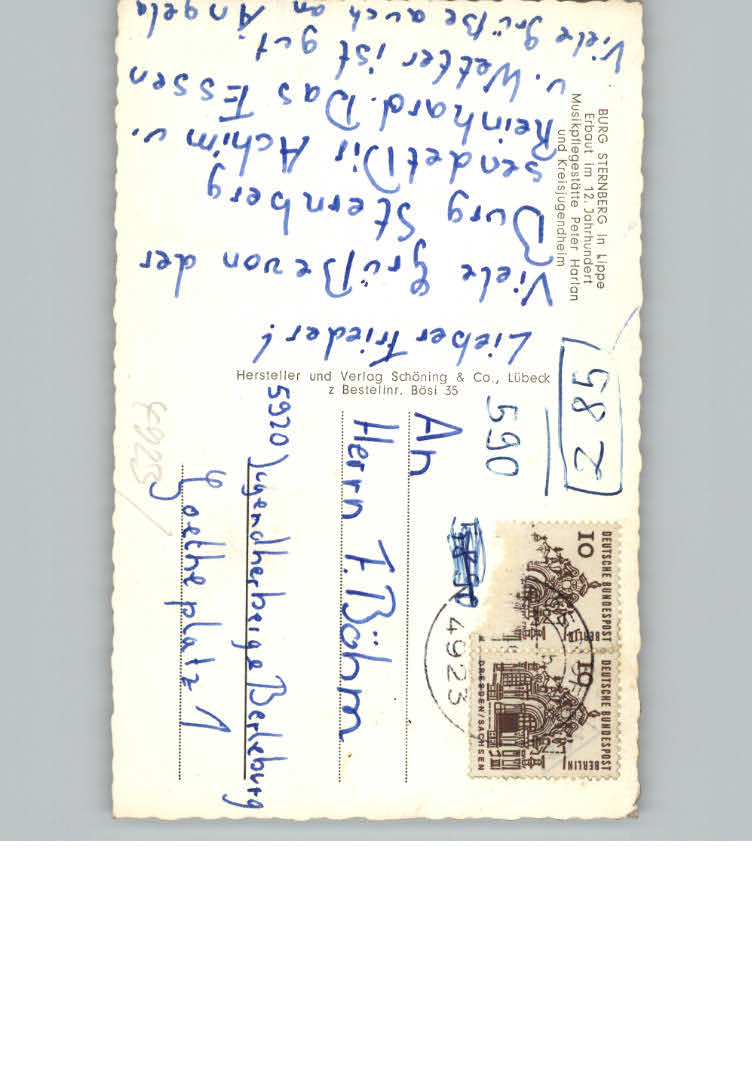 BURG STERNBERG in Lippe
Erbaut im 12. Jahrhundert
Musikpflegestätte Peter Harlan
und Kreisjugendheim
Lieber Frieder!
Viele Grüße von der
Burg Sternberg
sendet Dir Achim u.
Reinhard. Das Essen
u. Wetter ist gut.
Viele Grüße auch an Angela
Hersteller und Verlag Schöning & Co., Lübeck
z Bestellnr. Bösi 35
285
590
DEUTSCHE BUNDESPOST
BERLIN
10
DEUTSCHE BUNDESPOST
BERLIN
10
DRESDEN/SACHSEN
4923
An
Herrn F. Böhm
5920 Jugendherberge Berleburg
Goetheplatz 1
4923